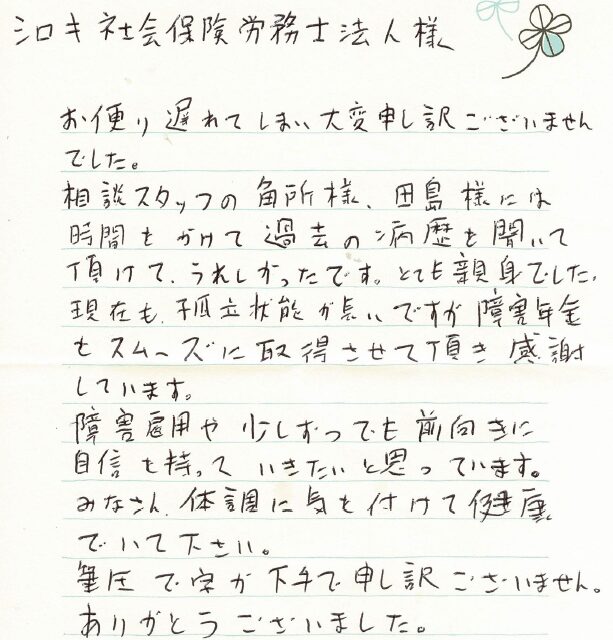 シロキ社会保険労務士法人様
お便り遅れてしまい大変申し訳ございません
でした。
相談スタッフの角所様、田島様には
時間をかけて過去の病歴を聞いて
頂けて、うれしかったです。とても親身でした。
現在も、孤立状態が長いですが障害年金
をスムーズに取得させて頂き感謝
しています。
障害雇用や少しずつでも前向きに
自信を持っていきたいと思っています。
みなさん、体調に気を付けて健康
でいて下さい。
筆圧で字が下手で申し訳ございません。
ありがとうございました。